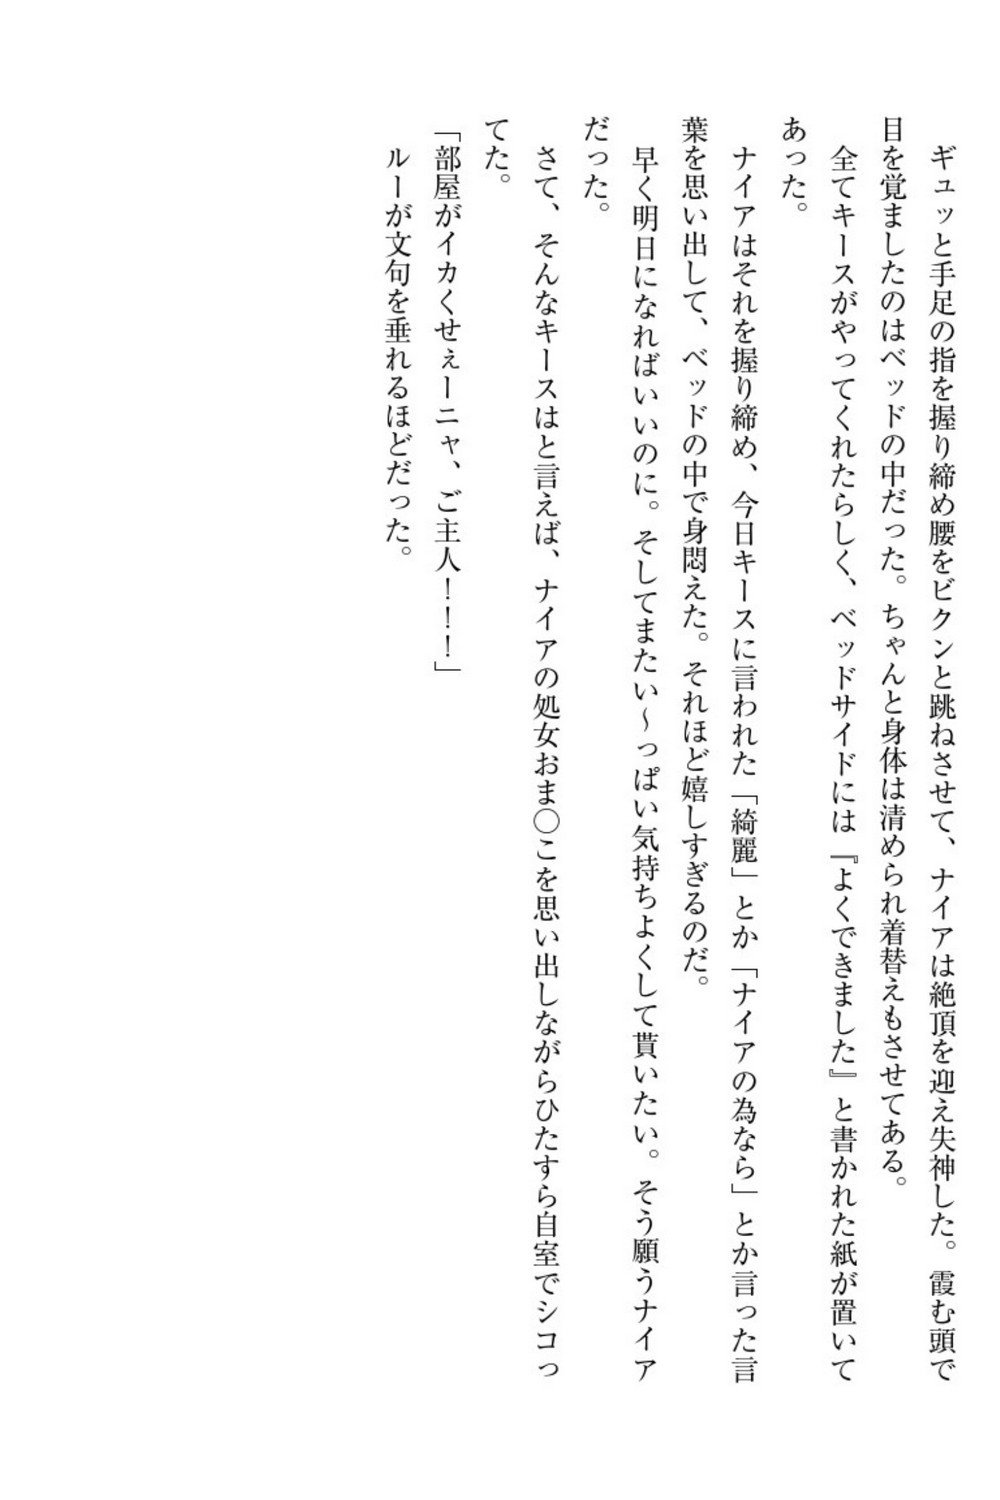 ギュッと手足の指を握り締め腰をビクンと跳ねさせて、ナイアは絶頂を迎え失神した。霞む頭で
目を覚ましたのはベッドの中だった。ちゃんと身体は清められ着替えもさせてある。
　全てキースがやってくれたらしく、ベッドサイドには『よくできました』と書かれた紙が置いて
あった。
　ナイアはそれを握り締め、今日キースに言われた「綺麗」とか「ナイアの為なら」とか言った言
葉を思い出して、ベッドの中で身悶えた。それほど嬉しすぎるのだ。
　早く明日になればいいのに。そしてまたい～っぱい気持ちよくして貰いたい。そう願うナイア
だった。
　さて、そんなキースはと言えば、ナイアの処女おま〇こを思い出しながらひたすら自室でシコっ
てた。
「部屋がイカくせぇーニャ、ご主人！！！」
　ルーが文句を垂れるほどだった。